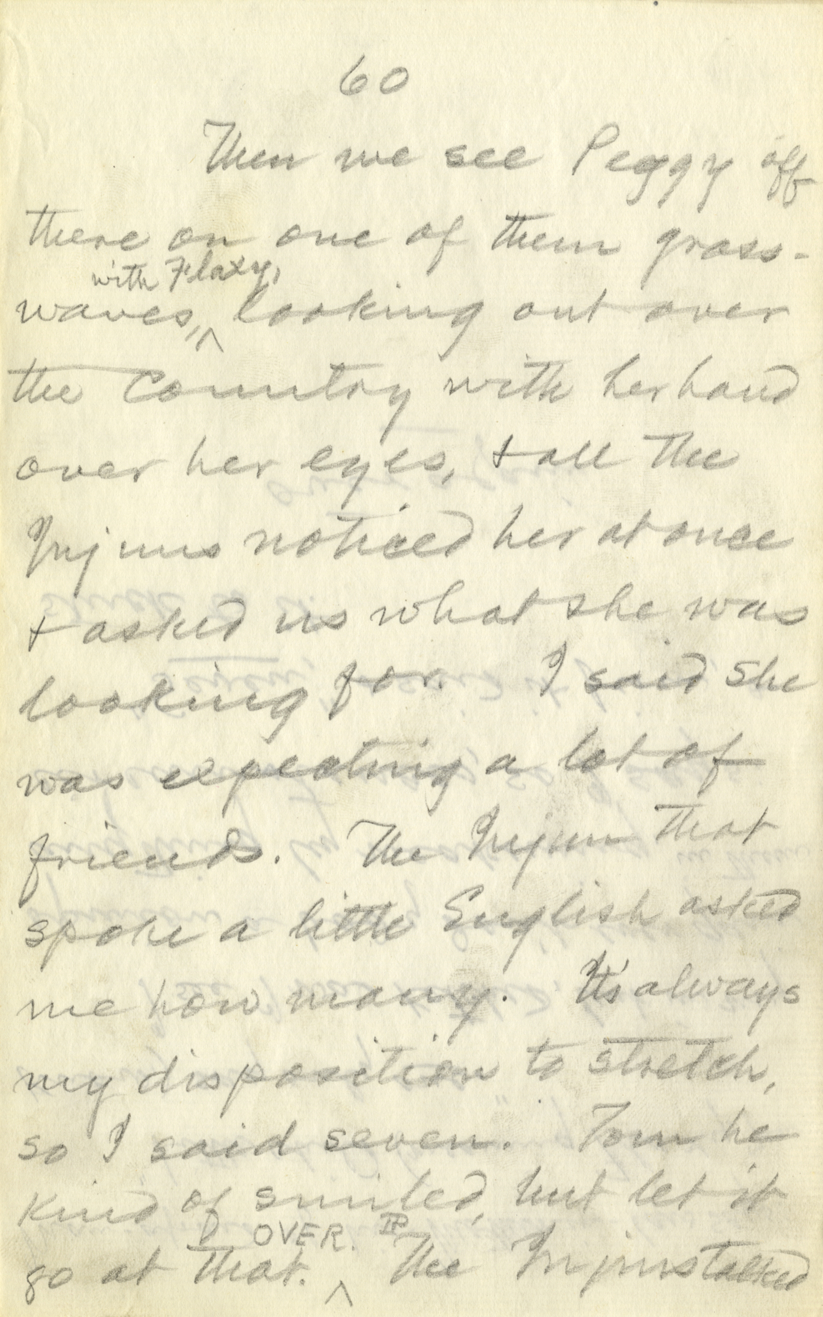 60
Then we see Peggy off
there on one of them grass-
with Flaxy,
waves, ^ looking out over
the country with her hand
over her eyes, & all the
Injuns noticed her at once
& asked us what she was
looking for. I said she
was expecting a lot of
friends. The Injun that
spoke a little English asked
me how many. It's always
my disposition to stretch,
so I said seven. Tom he
kind of smiled, but let it
OVER. ¶
go at that. ^ The Injuns talked